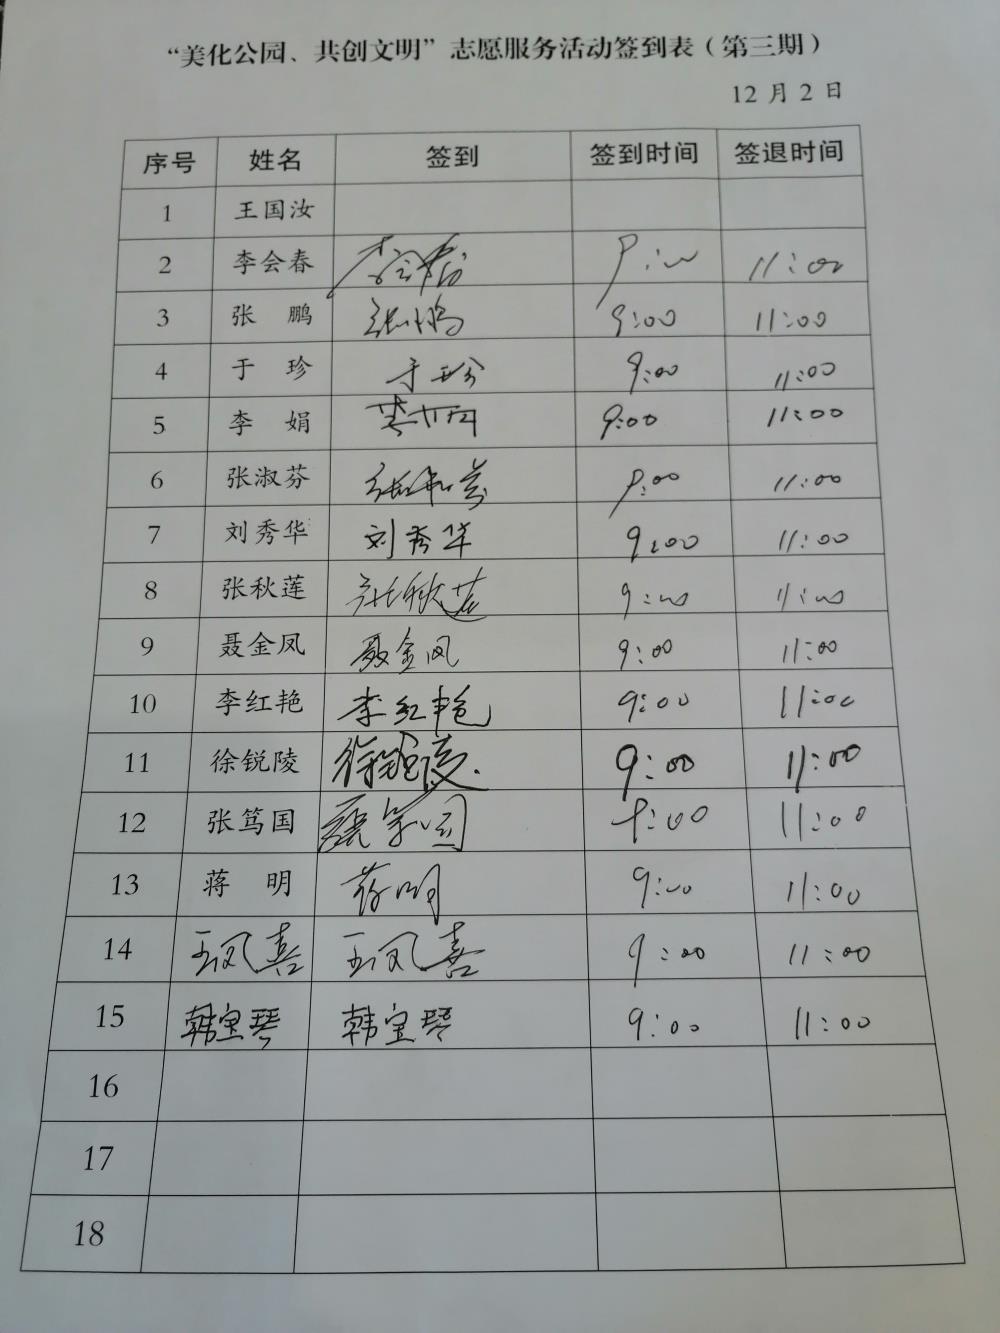 “美化公园、共创文明”志愿服务活动签到表（第三期）
12 月 2 日
序号 姓名 签到 签到时间 签退时间
1 王国汝
2 李会春 李会春 9:00 11:00
3 张 鹏 张鹏 9:00 11:00
4 于 珍 于珍 9:00 11:00
5 李 娟 李娟 9:00 11:00
6 张淑芬 张淑芬 9:00 11:00
7 刘秀华 刘秀华 9:00 11:00
8 张秋莲 张秋莲 9:00 11:00
9 聂金凤 聂金凤 9:00 11:00
10 李红艳 李红艳 9:00 11:00
11 徐锐陵 徐锐陵 9:00 11:00
12 张笃国 张笃国 9:00 11:00
13 蒋 明 蒋明 9:00 11:00
14 王凤喜 王凤喜 9:00 11:00
15 韩宝琴 韩宝琴 9:00 11:00
16
17
18